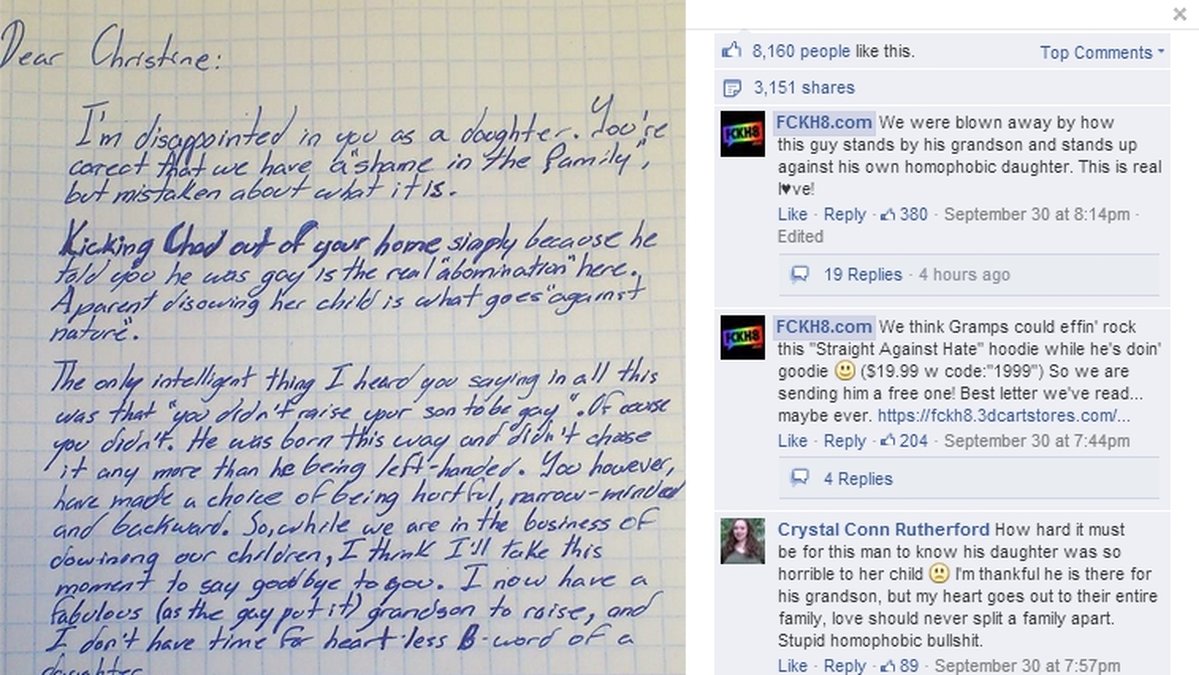 Dear Christine:
I'm disappointed in you as a daughter. You're
corect that we have a "shame in the family",
but mistaken about what it is.
Kicking Chad out of your home simply because he
told you he was gay is the real "abomination" here.
A parent disowing her child is what goes "against
nature".
The only intelligent thing I heard you saying in all this
was that "you didn't raise your son to be gay". Of couse
you didn't. He was born this way and didn't choose
it any more than he being left-handed. You however,
have made a choice of being hortful, narrow-minded
and backward. So, while we are in the business of
dowinong our children, I think I'll take this
moment to say goodbye to you. I now have a
fabulous (as the gay put it) grandson to raise, and
I don't have time for heart-less B-word of a
daughter
8,160 people like this.
Top Comments
3,151 shares
FCKH8
FCKH8.com We were blown away by how
this guy stands by his grandson and stands up
against his own homophobic daughter. This is real
l♥ve!
Like · Reply · 380 · September 30 at 8:14pm ·
Edited
19 Replies · 4 hours ago
FCKH8
FCKH8.com We think Gramps could effin' rock
this "Straight Against Hate" hoodie while he's doin'
goodie 🙂 ($19.99 w code:"1999") So we are
sending him a free one! Best letter we've read...
maybe ever. https://fckh8.3dcartstores.com/...
Like · Reply · 204 · September 30 at 7:44pm
4 Replies
Crystal Conn Rutherford How hard it must
be for this man to know his daughter was so
horrible to her child 🙁 I'm thankful he is there for
his grandson, but my heart goes out to their entire
family, love should never split a family apart.
Stupid homophobic bullshit.
Like · Reply · 89 · September 30 at 7:57pm